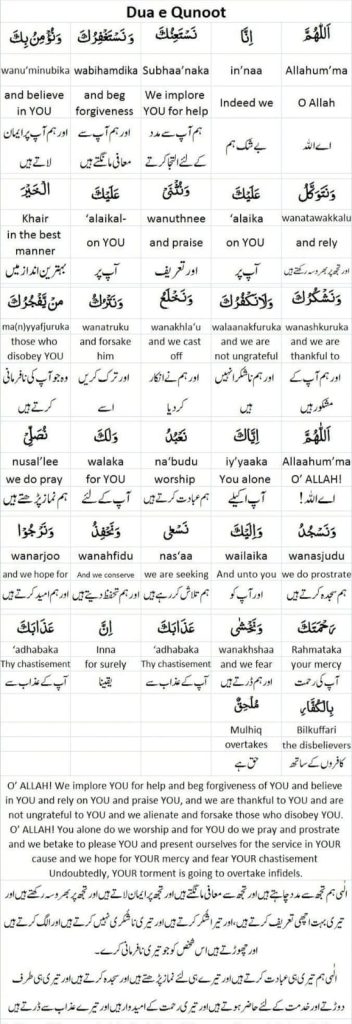 Dua e Qunoot
اَللّٰهُمَّ اِنَّا نَسْتَعِيْنُكَ وَنَسْتَغْفِرُكَ وَنُؤْمِنُ بِكَ
wanu'minubika wabihamdika Subhaa'naka in'naa Allahum'ma
and believe in YOU and beg forgiveness We implore YOU for help Indeed we O Allah
اے اللہ بے شک ہم ہم آپ سے مدد کے لئے التجا کرتے اور ہم آپ سے معافی مانگتے ہیں اور ہم آپ پر ایمان لاتے ہیں
وَنَتَوَكَّلُ عَلَيْكَ وَنُثْنِىْ عَلَيْكَ الْخَيْرَ
Khair 'alaikal- wanuthnee 'alaika wanatawakkalu
in the best manner on YOU and praise on YOU and rely
اور تجھ پر بھروسہ رکھتے ہیں آپ پر اور تعریف آپ پر بہترین انداز میں
وَنَشْكُرُكَ وَلَانَكْفُرُكَ وَنَخْلَعُ وَنَتْرُكُ مَنْ يَّفْجُرُكَ
ma(n)yyafjuruka wanatruku wanakhla'u walaanakfuruka wanashkuruka
those who disobey YOU and forsake him and we cast off and we are not ungrateful and we are thankful to
اور ہم آپ کے مشکور ہیں اور ہم ناشکرا نہیں ہیں اور ہم نے انکار کر دیا اور ترک کریں اسے وہ جو آپ کی نافرمانی کرتے ہیں
اَللّٰهُمَّ اِيَّاكَ نَعْبُدُ وَلَكَ نُصَلِّىْ
nusal'lee walaka na'budu iy'yaaka Allaahum'ma
we do pray for YOU worship You alone O' ALLAH!
اے اللہ! آپ اکیلے ہم عبادت کرتے ہیں آپ کے لئے ہم نماز پڑھتے ہیں
وَنَسْجُدُ وَاِلَيْكَ نَسْعٰى وَنَحْفِدُ وَنَرْجُوْا
wanarjoo wanahfidu nas'aa wailaika wanasjudu
and we hope for And we conserve we are seeking And unto you we do prostrate
ہم سجدہ کرتے ہیں اور آپ کو ہم تلاش کر رہے ہیں اور ہم تحفظ دیتے ہیں اور ہم امید کرتے ہیں
رَحْمَتَكَ وَنَخْشٰى عَذَابَكَ اِنَّ عَذَابَكَ
'adhabaka Inna 'adhabaka wanakhshaa Rahmataka
Thy chastisement for surely Thy chastisement and we fear your mercy
آپ کی رحمت اور ہم ڈرتے ہیں آپ کے عذاب سے یقینا آپ کے عذاب سے
بِالْكُفَّارِ مُلْحِقٌ
Mulhiq Bilkuffari
overtakes the disbelievers
کافروں کے ساتھ حق ہے
O' ALLAH! We implore YOU for help and beg forgiveness of YOU and believe
in YOU and rely on YOU and praise YOU, and we are thankful to YOU and are
not ungrateful to YOU and we alienate and forsake those who disobey YOU.
O' ALLAH! You alone do we worship and for YOU do we pray and prostrate
and we betake to please YOU and present ourselves for the service in YOUR
cause and we hope for YOUR mercy and fear YOUR chastisement
Undoubtedly, YOUR torment is going to overtake infidels.
الٰہی ہم تجھ سے مدد چاہتے ہیں اور تجھ سے معافی مانگتے ہیں اور تجھ پر ایمان لاتے ہیں اور تجھ پر بھروسہ رکھتے ہیں اور
تیری بہت اچھی تعریف کرتے ہیں، اور تیرا شکر کرتے ہیں اور تیری ناشکری نہیں کرتے ہیں اور الگ کرتے ہیں
اور چھوڑتے ہیں اس شخص کو جو تیری نافرمانی کرے۔
الٰہی ہم تیری ہی عبادت کرتے ہیں اور تیرے ہی لئے نماز پڑھتے ہیں اور سجدہ کرتے ہیں اور تیری ہی طرف
دوڑتے اور خدمت کے لئے حاضر ہوتے ہیں اور تیری رحمت کے امیدوار ہیں اور تیرے عذاب سے ڈرتے ہیں